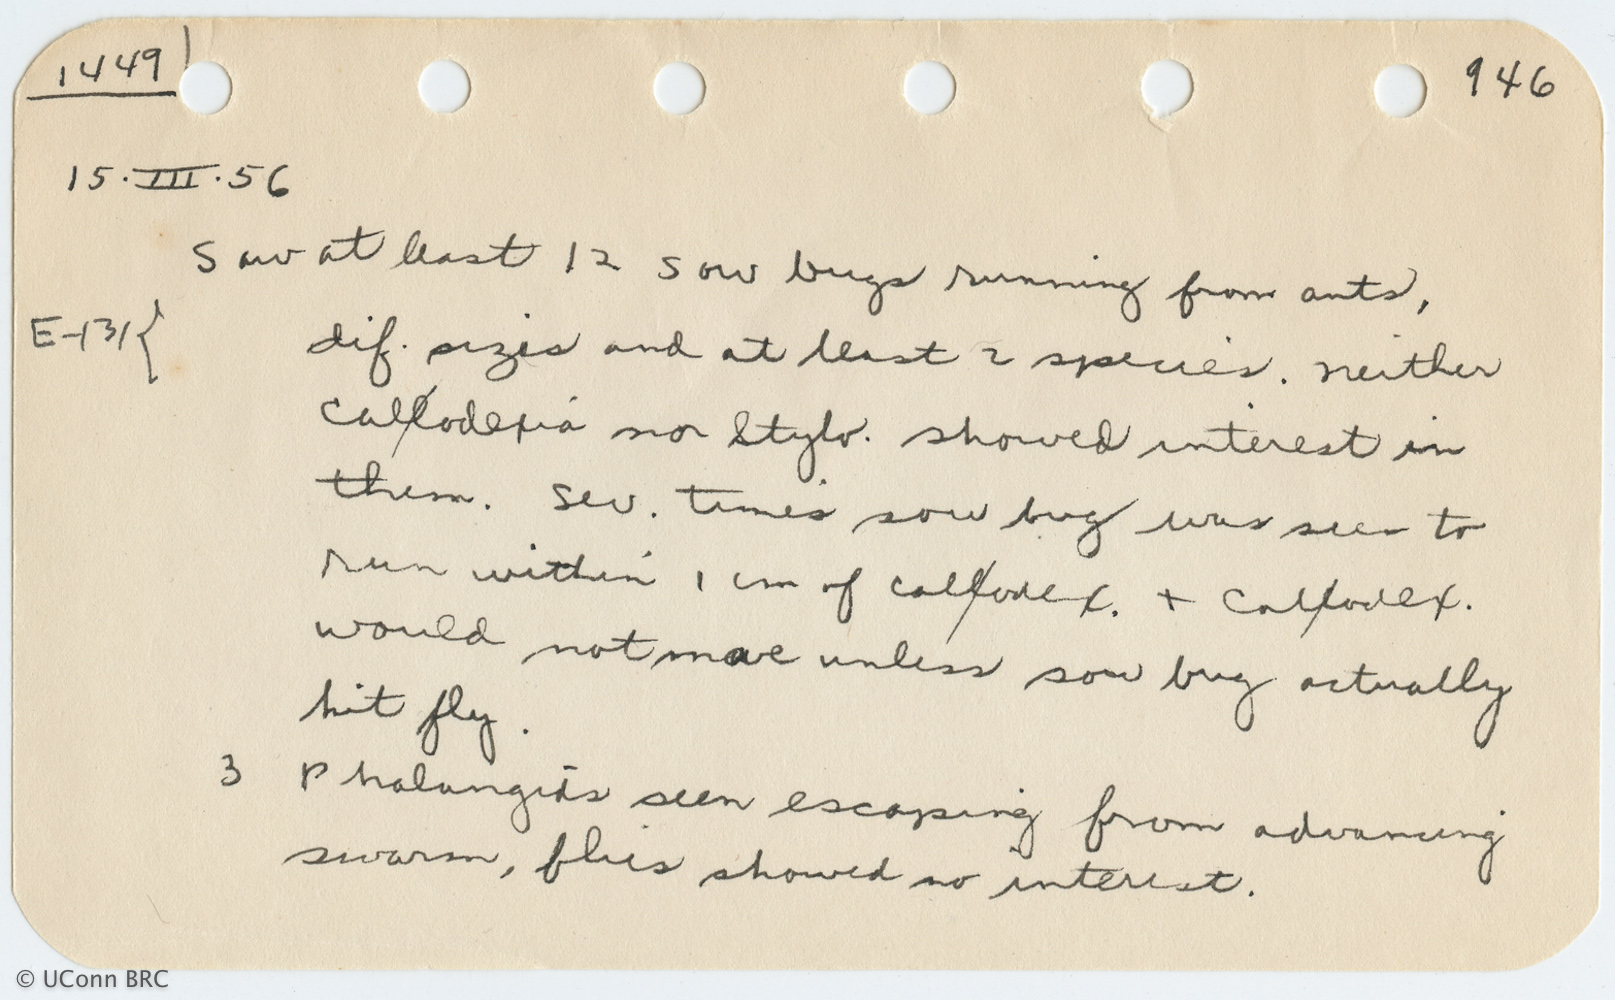 1449
946
15·III·56
Saw at least 12 sow bugs running from ants,
E-131{
dif. sizes and at least 2 species. neither
Calfodexia nor Stylo. showed interest in
them. Sev. times sow bug was seen to
run within 1 cm of calfodex. + Calfodex.
would not move unless sow bug actually
hit fly.
3 Phalangids seen escaping from advancing
swarm, flies showed no interest.
© UConn BRC